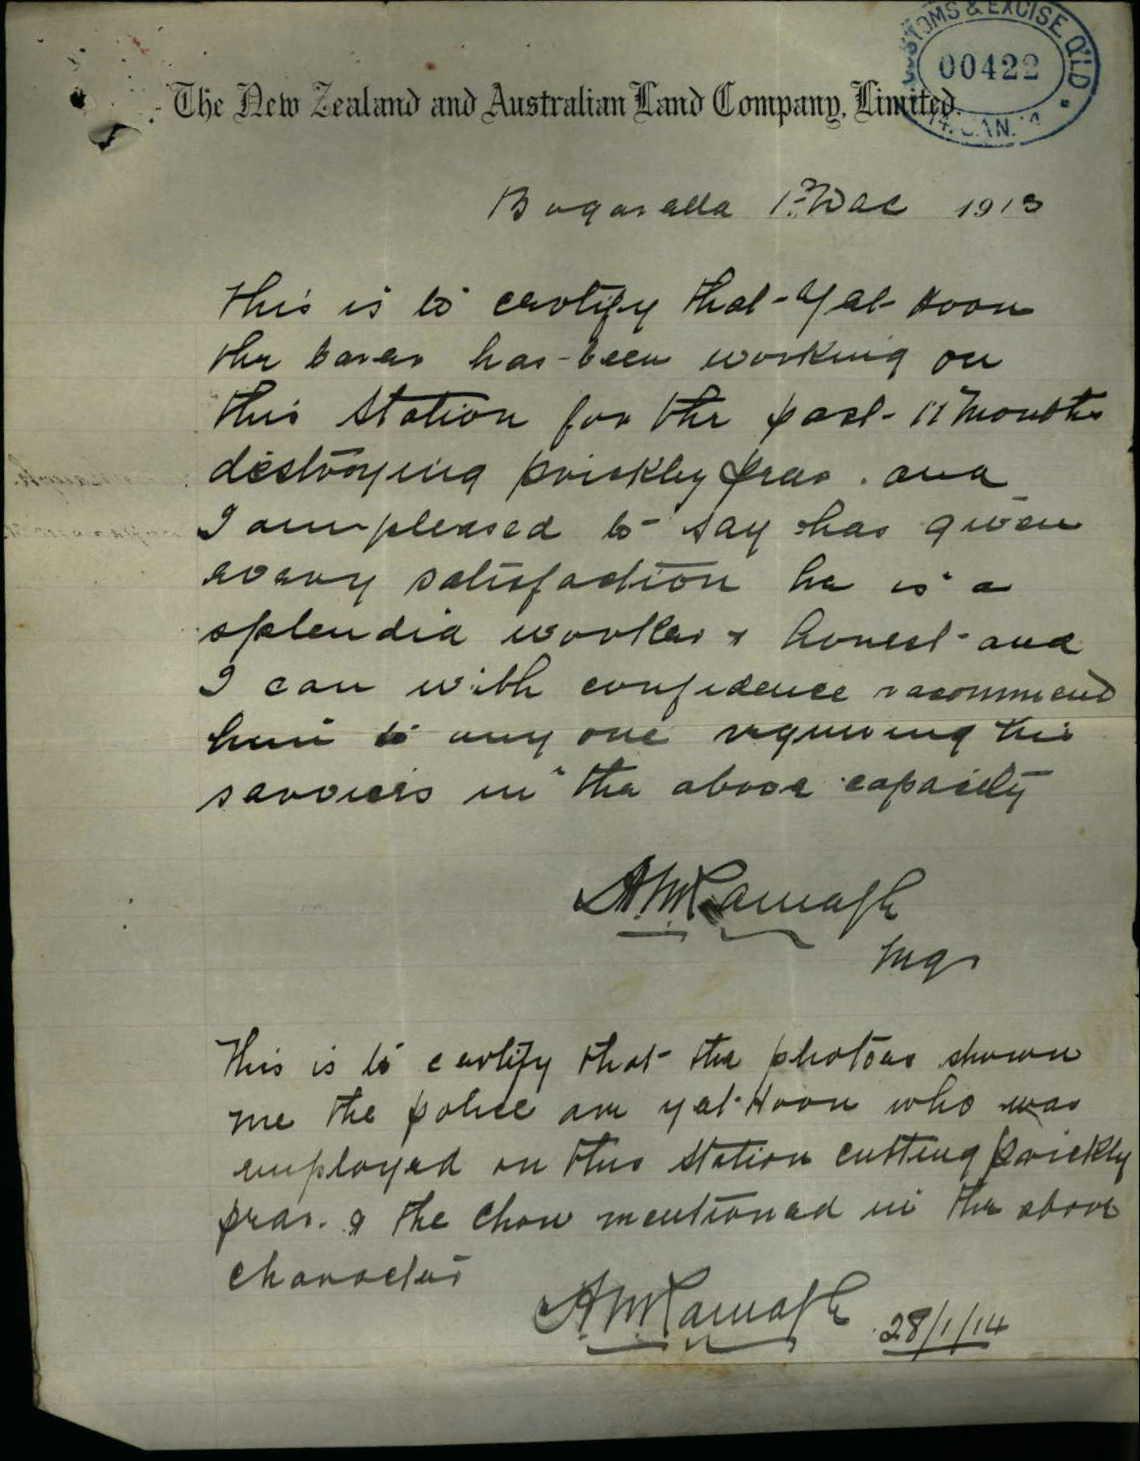 CUSTOMS & EXCISE. Q'LD
00422
14. JAN. 14
The New Zealand and Australian Land Company, Limited.
1st Dec 1913
This is to certify that Yat Hoon
the barer has been working on
this Station for the past 11 months
destroying prickley pear . and
I am pleased to say has given
every satisfaction he is a
splendid worker & honest and
I can with confidence recommend
him to any one requiring his
services in the above capacity
Mgr
This is to certify that the photoes shown
me the police are yat Hoon who was
employed on this Station cutting prickly
pear. & the Chow mentioned in the above
character
28/1/14